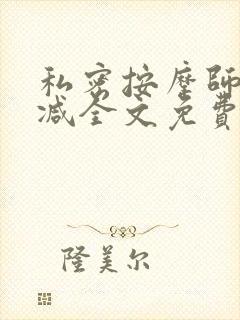 私密按摩師
减全文免費
隆美尔